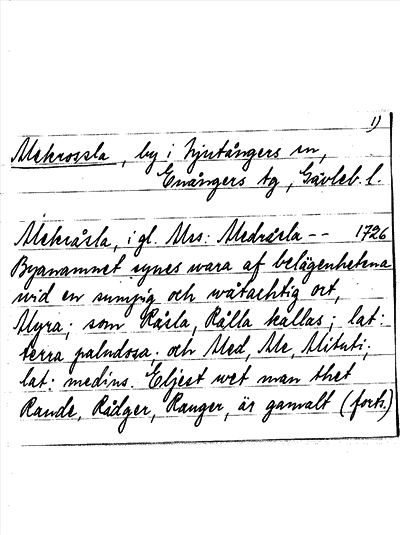 1)
Mekrossla, by i Njutångers sn,
Enångers tg, Gävleb. l.
Mekråsla, i gl. Mss: Medråsla -- 1726
Byanamnet synes wara af belägenheterna
wid en sumpig och wåtachtig ort,
Myra; som Råsla, Rålla kallas; lat:
terra paludosa. och Med, Me, Mituti;
lat: medius. Eljest wet man thet
Rande, Rådger, Ranger, är gamalt (forts.)